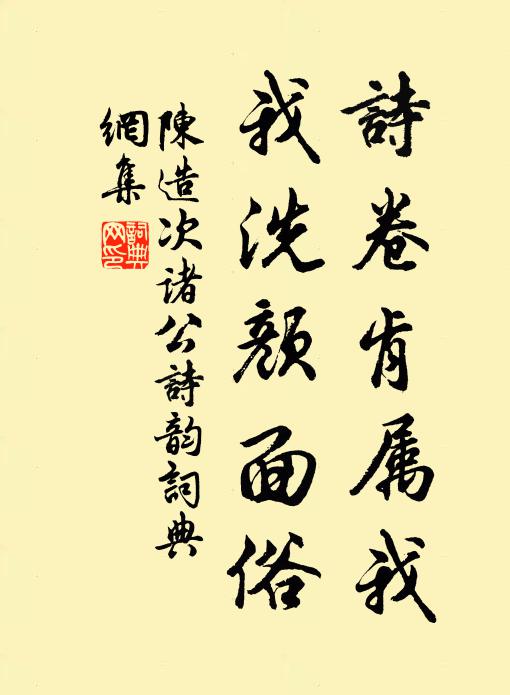 詩卷肯属我
我洗顏面俗
陳造次诸公詩韵詞典
網集
詞典
网印